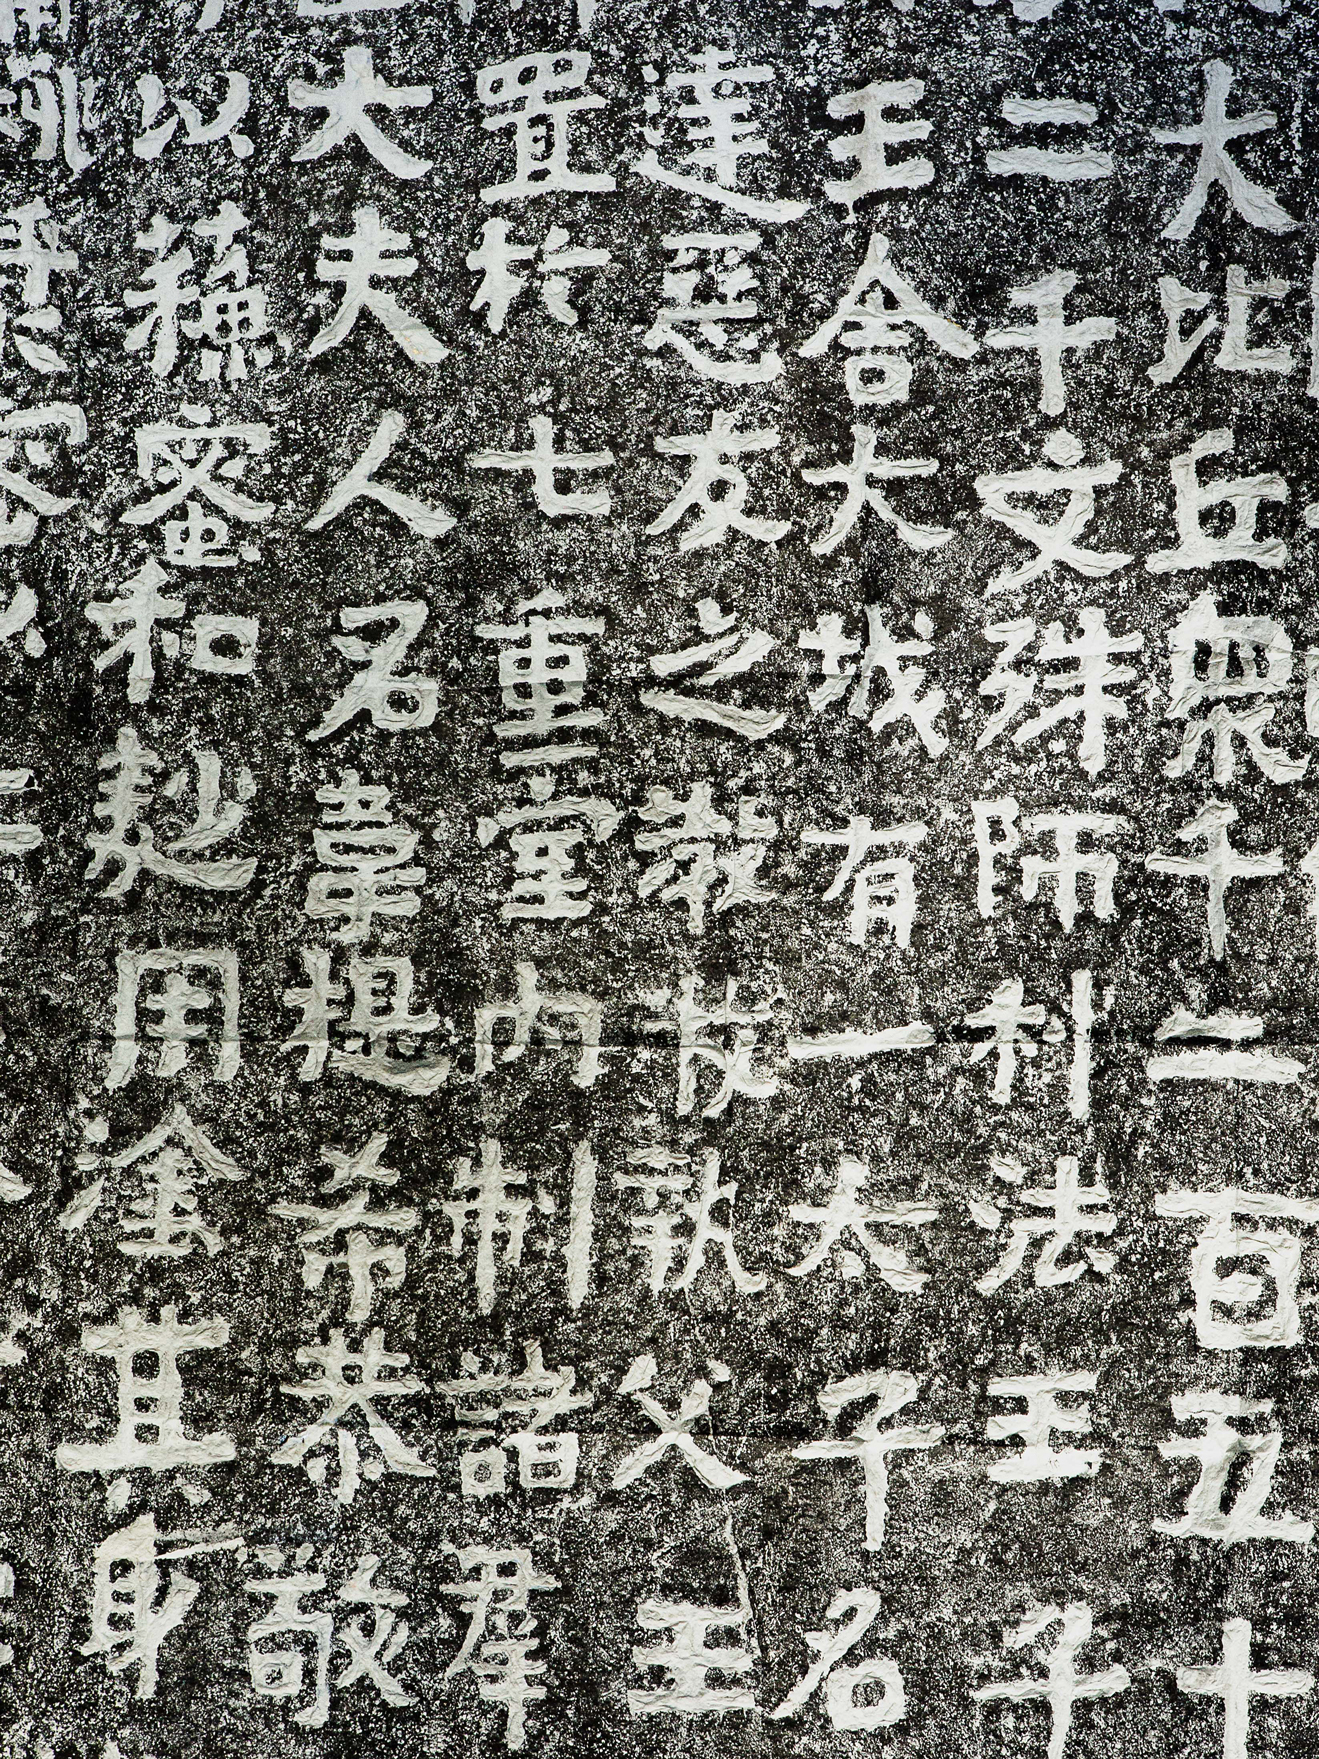 大比丘眾千二百五十
二千文殊師利法王子
王舍大城有一太子名
達惡友之教執父王
置於七重室內制諸群
大夫人名韋提希恭敬
以蘇蜜和麨用塗其